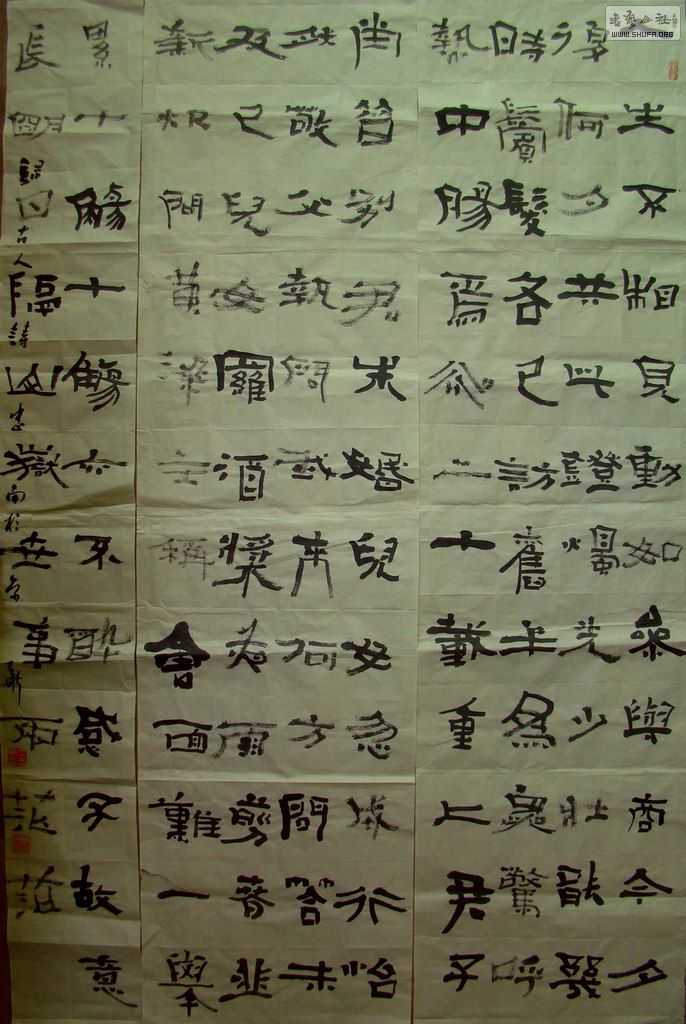 書藝公社
WWW.SHUFA.ORG
生不相見動如參與商今夕
復何夕共此證燭光少壯能
時鬢髮各已訪舊半為鬼驚呼
熱中腸焉二十載重上君子
堂昔別君未婚兒女忽成行怡
然敬父執問我來何方問答未
及已兒女羅酒漿夜雨剪春韭
新炊間黃粱主稱會面難一舉
累十觴十觴亦不醉感子故意
長明日隔山嶽世事兩茫茫
錄古人詩